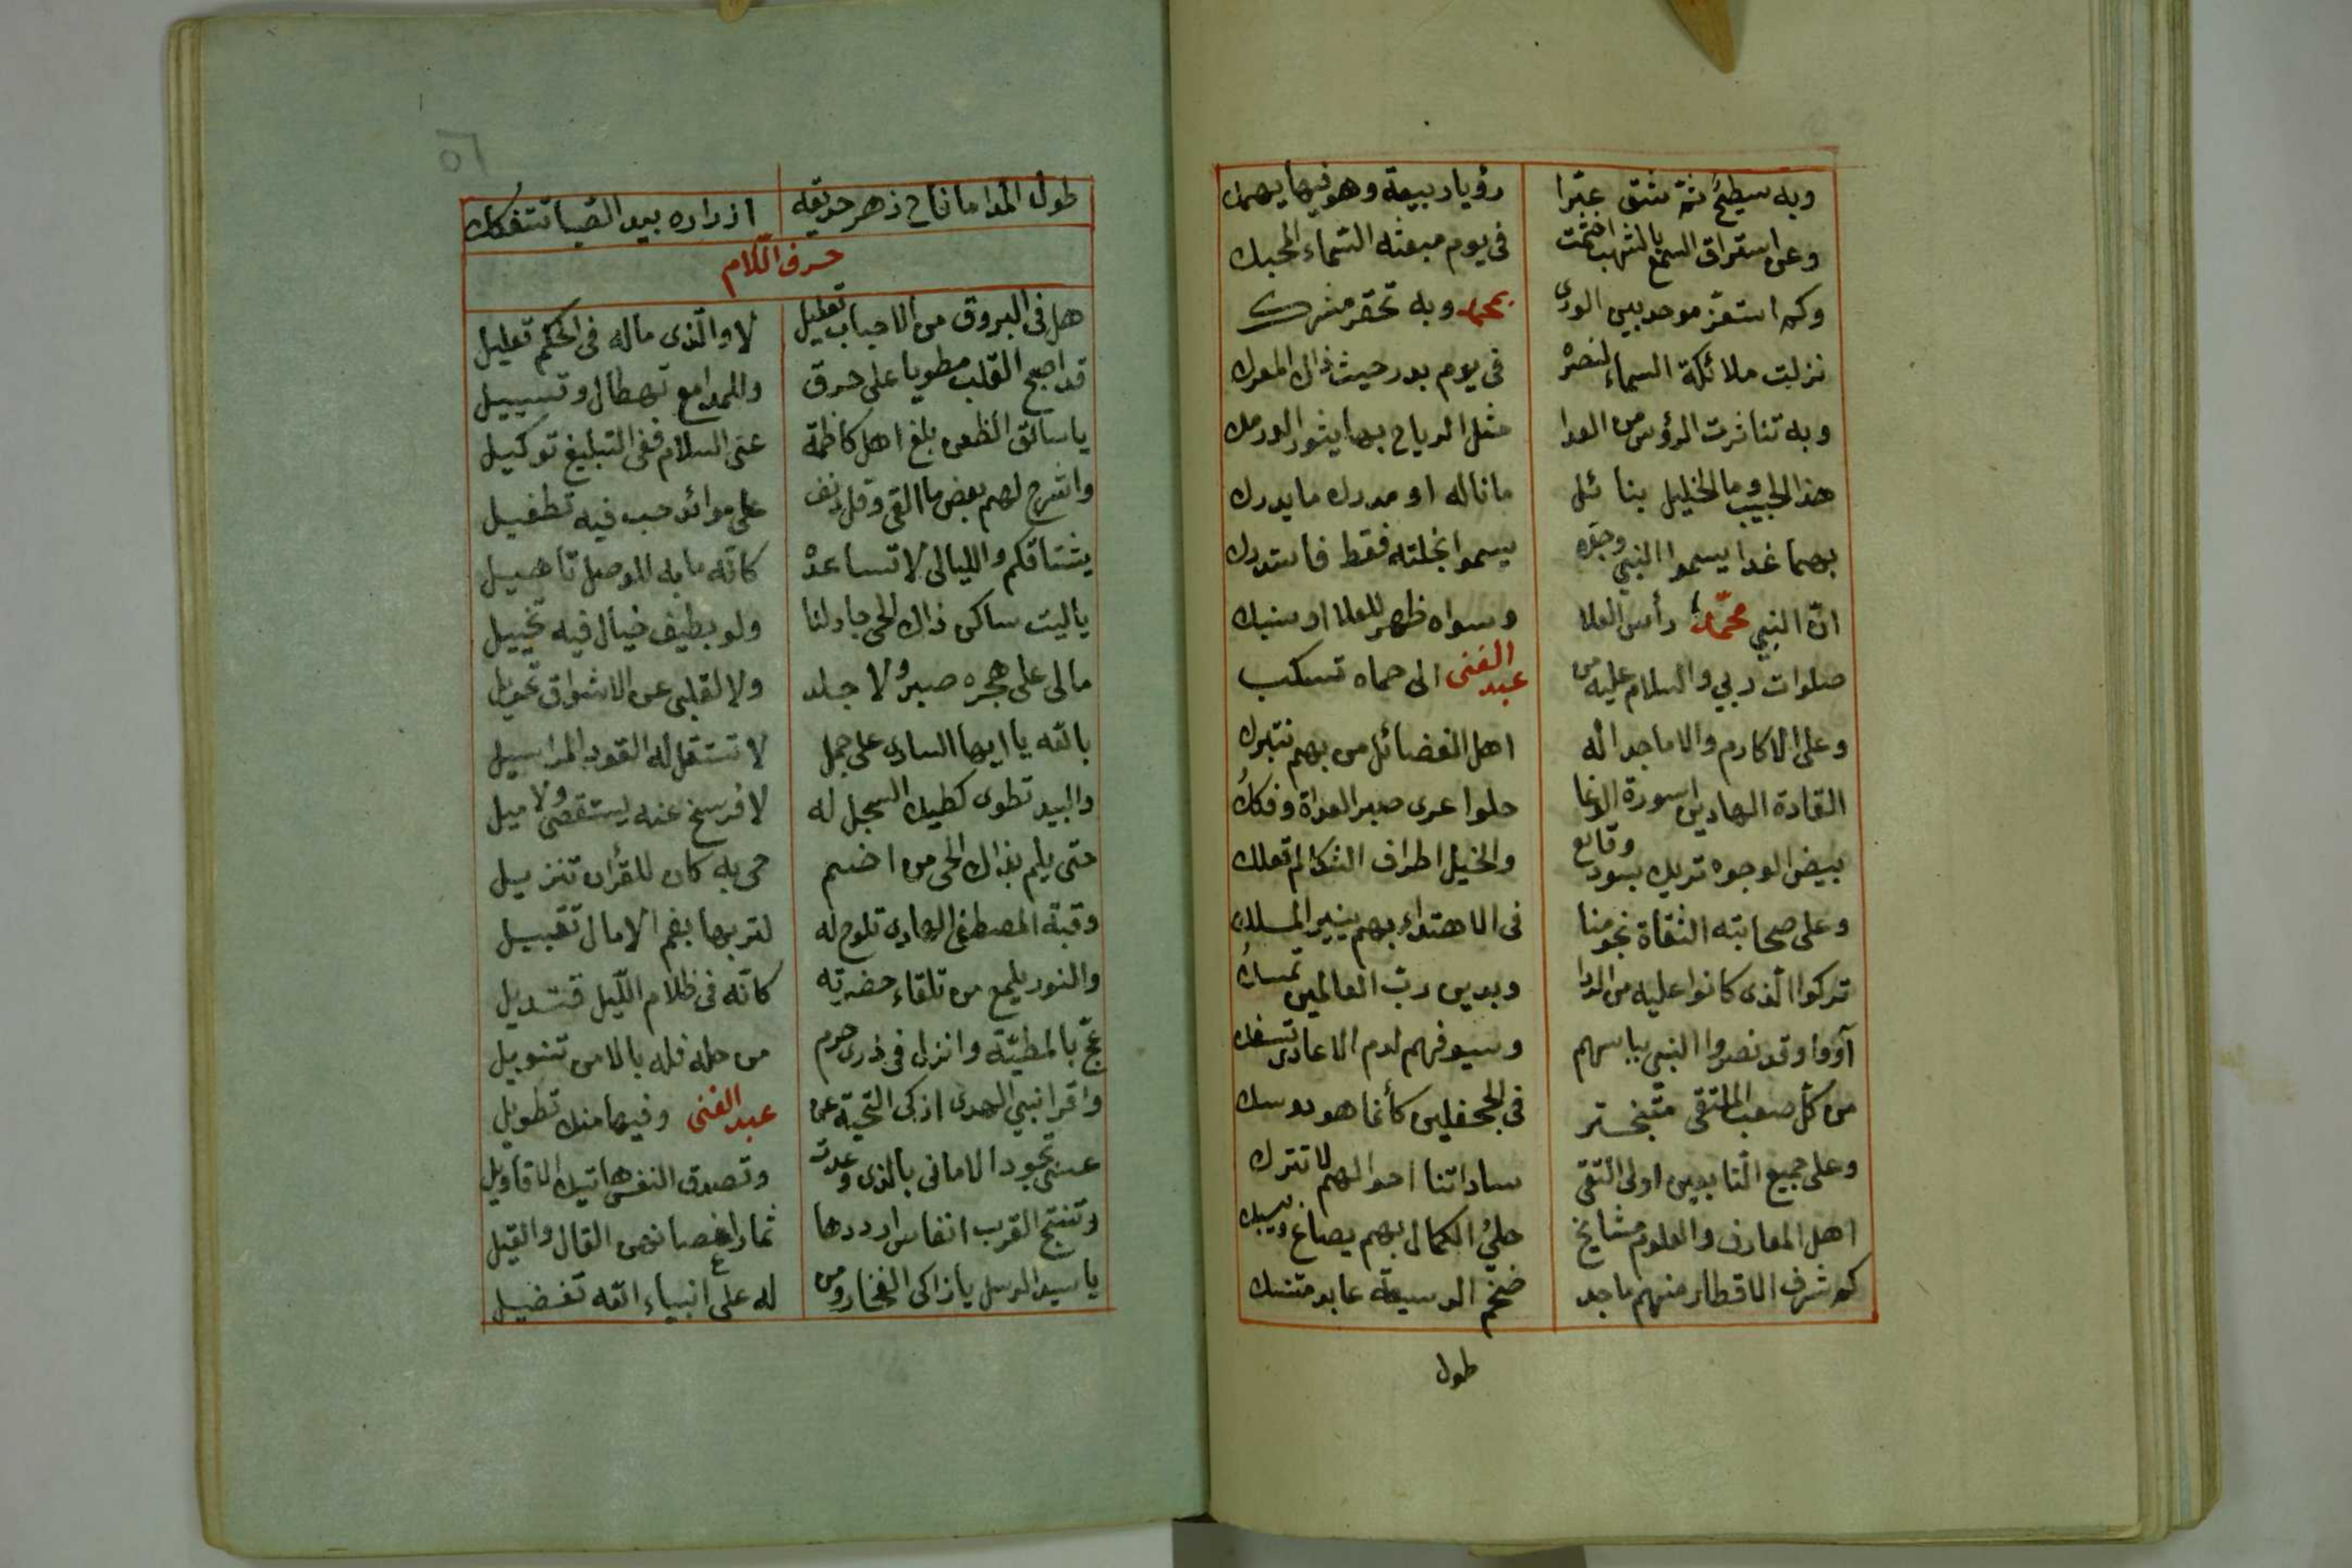 وبه سطيح ثم شق عبّرا رؤيا ربيعة وهو فيها يهمك
وعن استراق السمع بالشهب اختمت في يوم مبعثه السماء الحبك
وكم استعز موحد بين الورى بمحمد وبه تحقر مشرك
نزلت ملائكة السماء لنصره في يوم بدر حيث ذاك المعرك
وبه تناثرت الرؤس من العدا مثل الرياح بها يثور
هذا الحبيب وما الخليل بنائل ما ناله او مدرك ما يدرك
بهما غدا يسموا النبي وجدّه يسموا بخلته فقط فاستدرك
انّ النبي محمدا رأس العلا وسواه ظهر للعلا او سنبك
صلوات ربي والسلام عليه من عبد الغنى الى حماه تسكب
وعلى الاكارم والاماجد اله اهل الفضائل من بهم نتبرك
القادة الهادين اسورة الوغا حلوا عرى صبر العداة وفككُ
بيض الوجوه تريك بسود وقائع والخيل اطراف الشكائم تعلك
وعلى صحابته الثقاة نجومنا في الاهتداء بهم ينير المسلك
تركوا الذى كانوا عليه من الردا وبدين ربّ العالمين تمسكُ
آووا وقد نصروا النبي بباسهم وسيوفهم لدم الاعادى تسفك
من كل صعب الملتقى متبختر في الجحفلين كأنما هو دوسك
وعلى جميع التابعين اولى التقى ساداتنا احوالهم لا تترك
اهل المعارف والعلوم مشايخ حليُ الكمال بهم يصاغ ويسبك
كم شرف الاقطار منهم ماجد ضخم الدسيعة عابد متنسك
طول
٥٦
طول المدا ما فاح زهر حديقة ازراره بيد الصبا تتفكك
حرف اللام
هل في البروق من الاحباب تعليل لا والّذى ماله في الحكم تعليل
قد اصبح القلب مطويا على حرق وللمدامع تهطال وتسييل
يا سائق الظعن بلغ اهل كاظمة عنى السلام ففى التبليغ توكيل
واشرح لهم بعض ما القى وقل دنف على موائد حب فيه تطفيل
يشتاقكم والليالى لا تساعده كانّه ما به للوصل تاهيل
يا ليت ساكن ذاك الحى جاد لنا ولو بطيف خيال فيه تخييل
مالى على هجره صبر ولا جلد ولا لقلبى عن الاشواق تحويل
بالله يا ايها السارى على جمل لا تستقل له القود المراسيل
والبيد تطوى كطيك السجل له لا فرسخ عنه يستقصى ولا ميل
حتى يلم بذاك الحى من اضم حى به كان للقرأن تنزيل
وقبة المصطفى الهادى تلوح له لتربها بفم الامال تقبيل
والنور يلمع من تلقاء حضرته كانّه في ظلام اللّيل قنديل
عج بالمطيّة وانزل في ذرى حرم من حله فله بالامن تنويل
واقرا نبي الهدى ازكى التحية عن عبد الغنى وفيها منك تطويل
عسى تجود الامانى بالذى وعدت وتصدق النفس هاتيك الاقاويل
وتنتج القرب انفاس ارددها ثمار اغصانهن القال والقيل
يا سيد الرسل يا زاكى الفخار ومن له على انبياء الله تفضيل